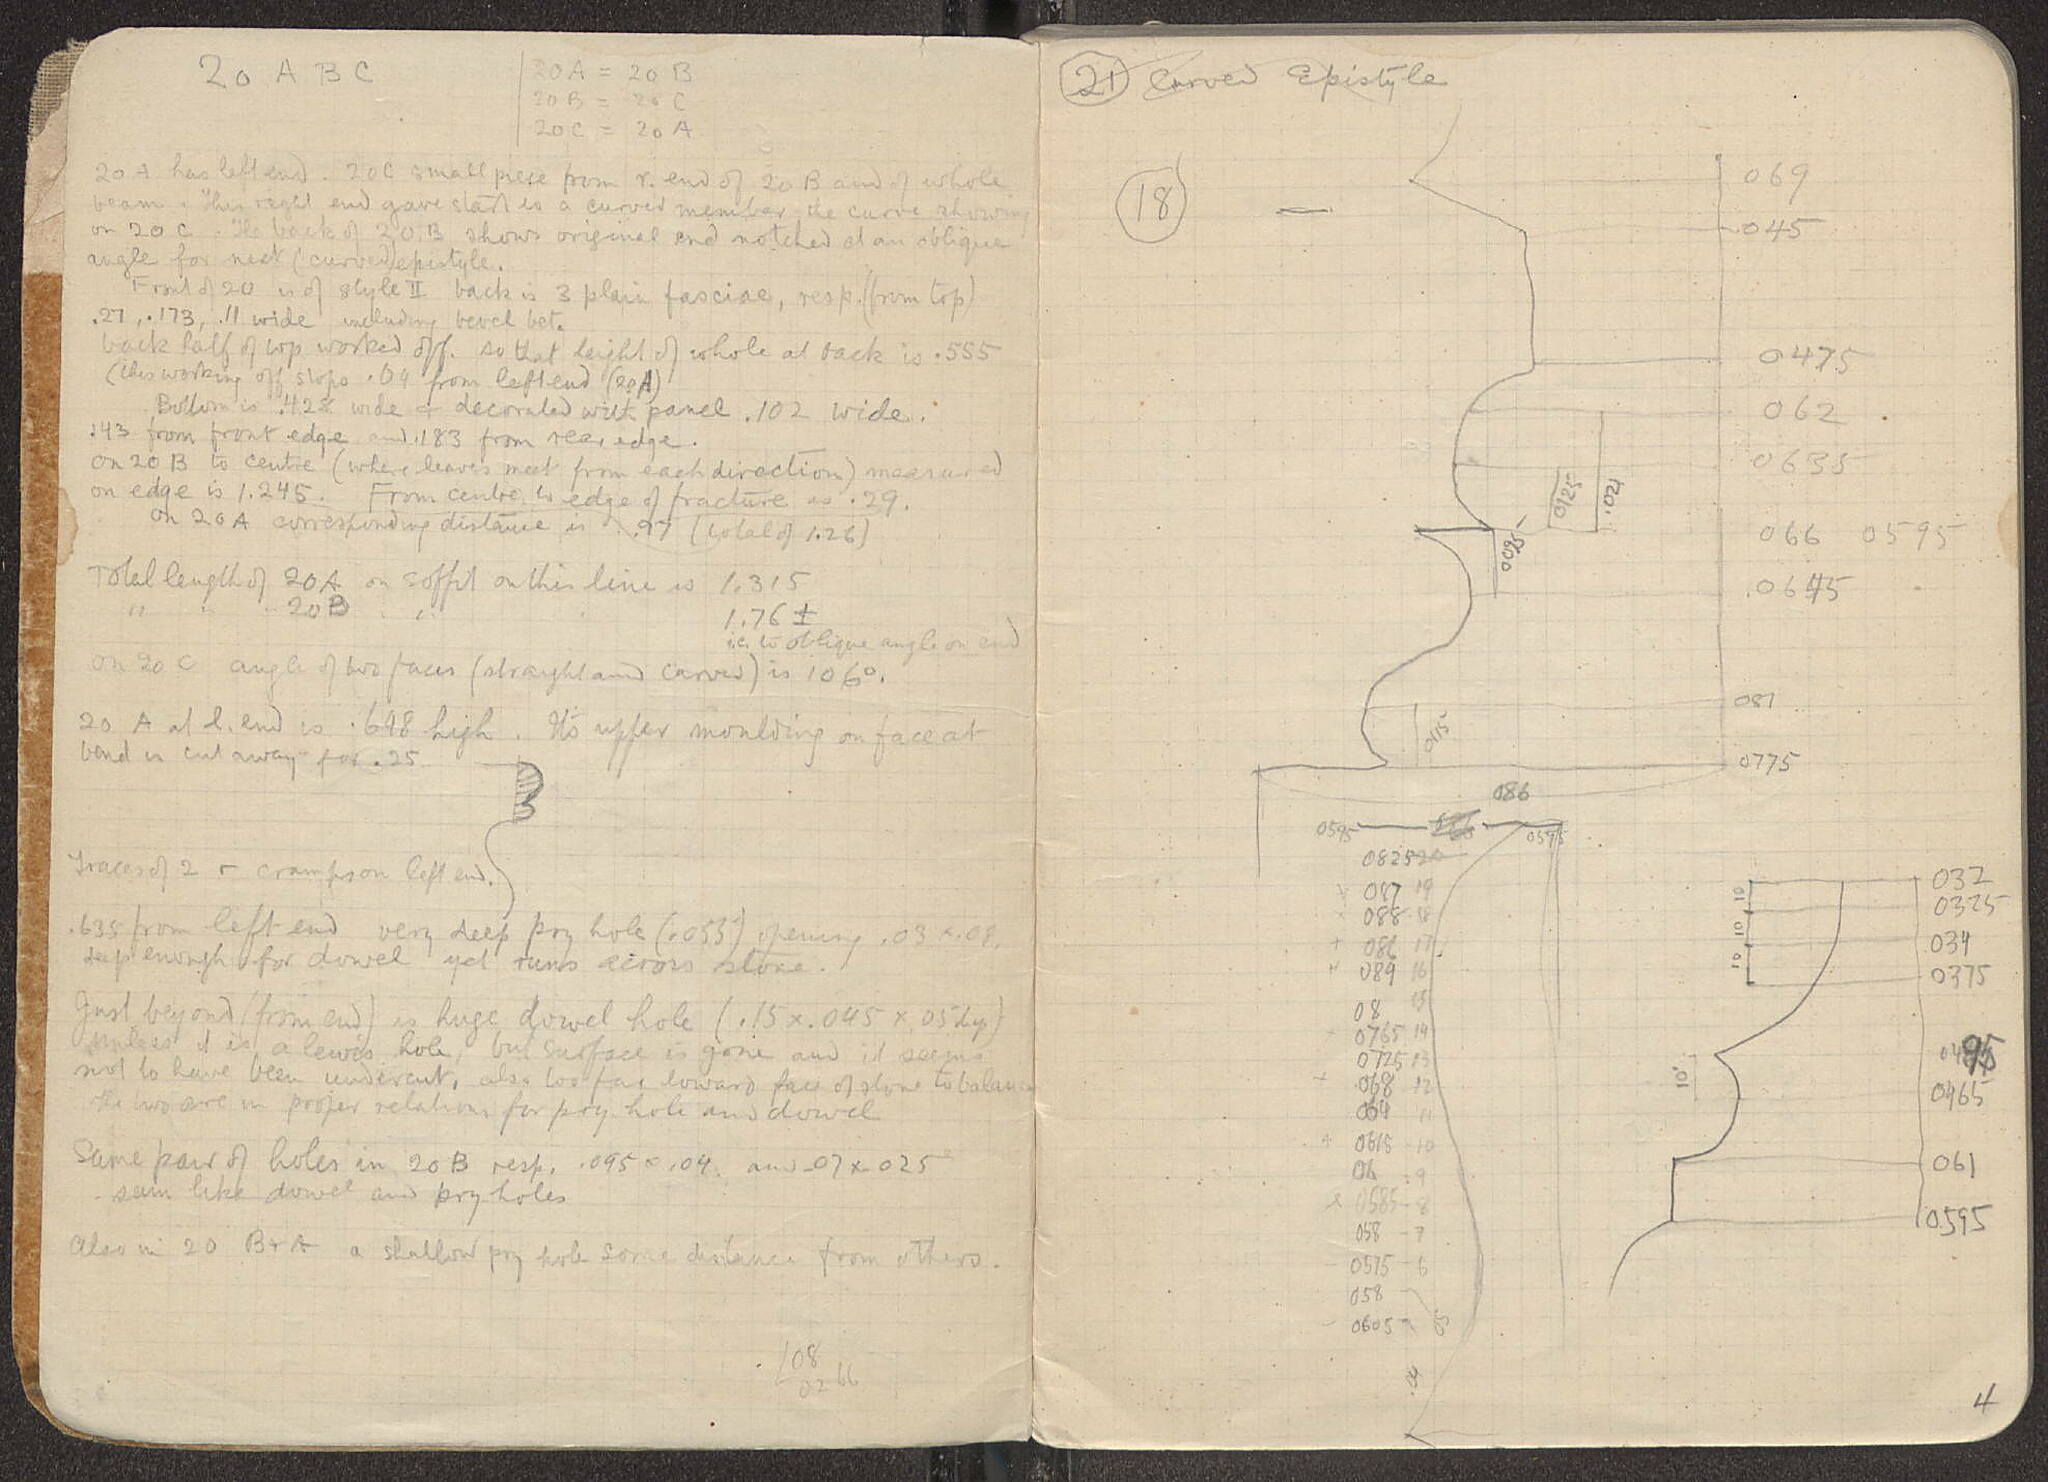 20 A B C
20A = 20 B
20B = 20 C
20C = 20 A
20 A has left end. 20C small piece from r. end of 20 B and of whole
beam. This right end gave start to a curved member, the curve showing
on 20 C. The back of 20 B shows original end notched at an oblique
angle for next (curved) epistyle.
Front of 20 is of style II back is 3 plain fasciae, resp. (from top)
.27, .173, .11 wide including bevel bet.
back half of top worked off. so that height of whole at back is .555
(this working off stops .04 from left end (20A)
Bottom is .428 wide & decorated with panel .102 wide.
.143 from front edge and .183 from rear edge.
on 20 B to centre (where leaves meet from each direction) measured
on edge is 1.245. From centre to edge of fracture is .29.
on 20 A corresponding distance is .97 (total of 1.26)
Total length of 20A on soffit on this line is 1.315
" " 20B " 1.76 ±
i.e. to oblique angle on end
on 20 C angle of two faces (straight and curved) is 106°.
20 A at l. end is .648 high. Its upper moulding on face at
bend is cut away for .25
Traces of 2 ⌐ cramps on left end.
.635 from left end very deep pry hole (.055) opening .03 × .08.
deep enough for dowel yet runs across stone.
Just beyond (from end) is huge dowel hole (.15 × .045 × .05 dp)
unless it is a lewis hole, but surface is gone and it seems
not to have been undercut, also too far toward face of stone to balance
the two are in proper relations for pry hole and dowel
Same pair of holes in 20 B resp. .095 × .04. and .07 × .025
seem like dowel and pry holes
Also in 20 B + A a shallow pry hole some distance from others.
108
02 66
21 Curved Epistyle
18
069
045
0475
062
0635
0125
.021
066 0595
0085
.0645
081
0115
0775
086
0595
0595
0825 20
087 19
088 18
086 17
089 16
08 15
0765 14
0725 13
.068 12
064 11
0615 10
06 9
0585 - 8
058 - 7
0575 - 6
058
0605
05
.04
032
0325
034
0375
10
10
10
10
0465
061
0595
4